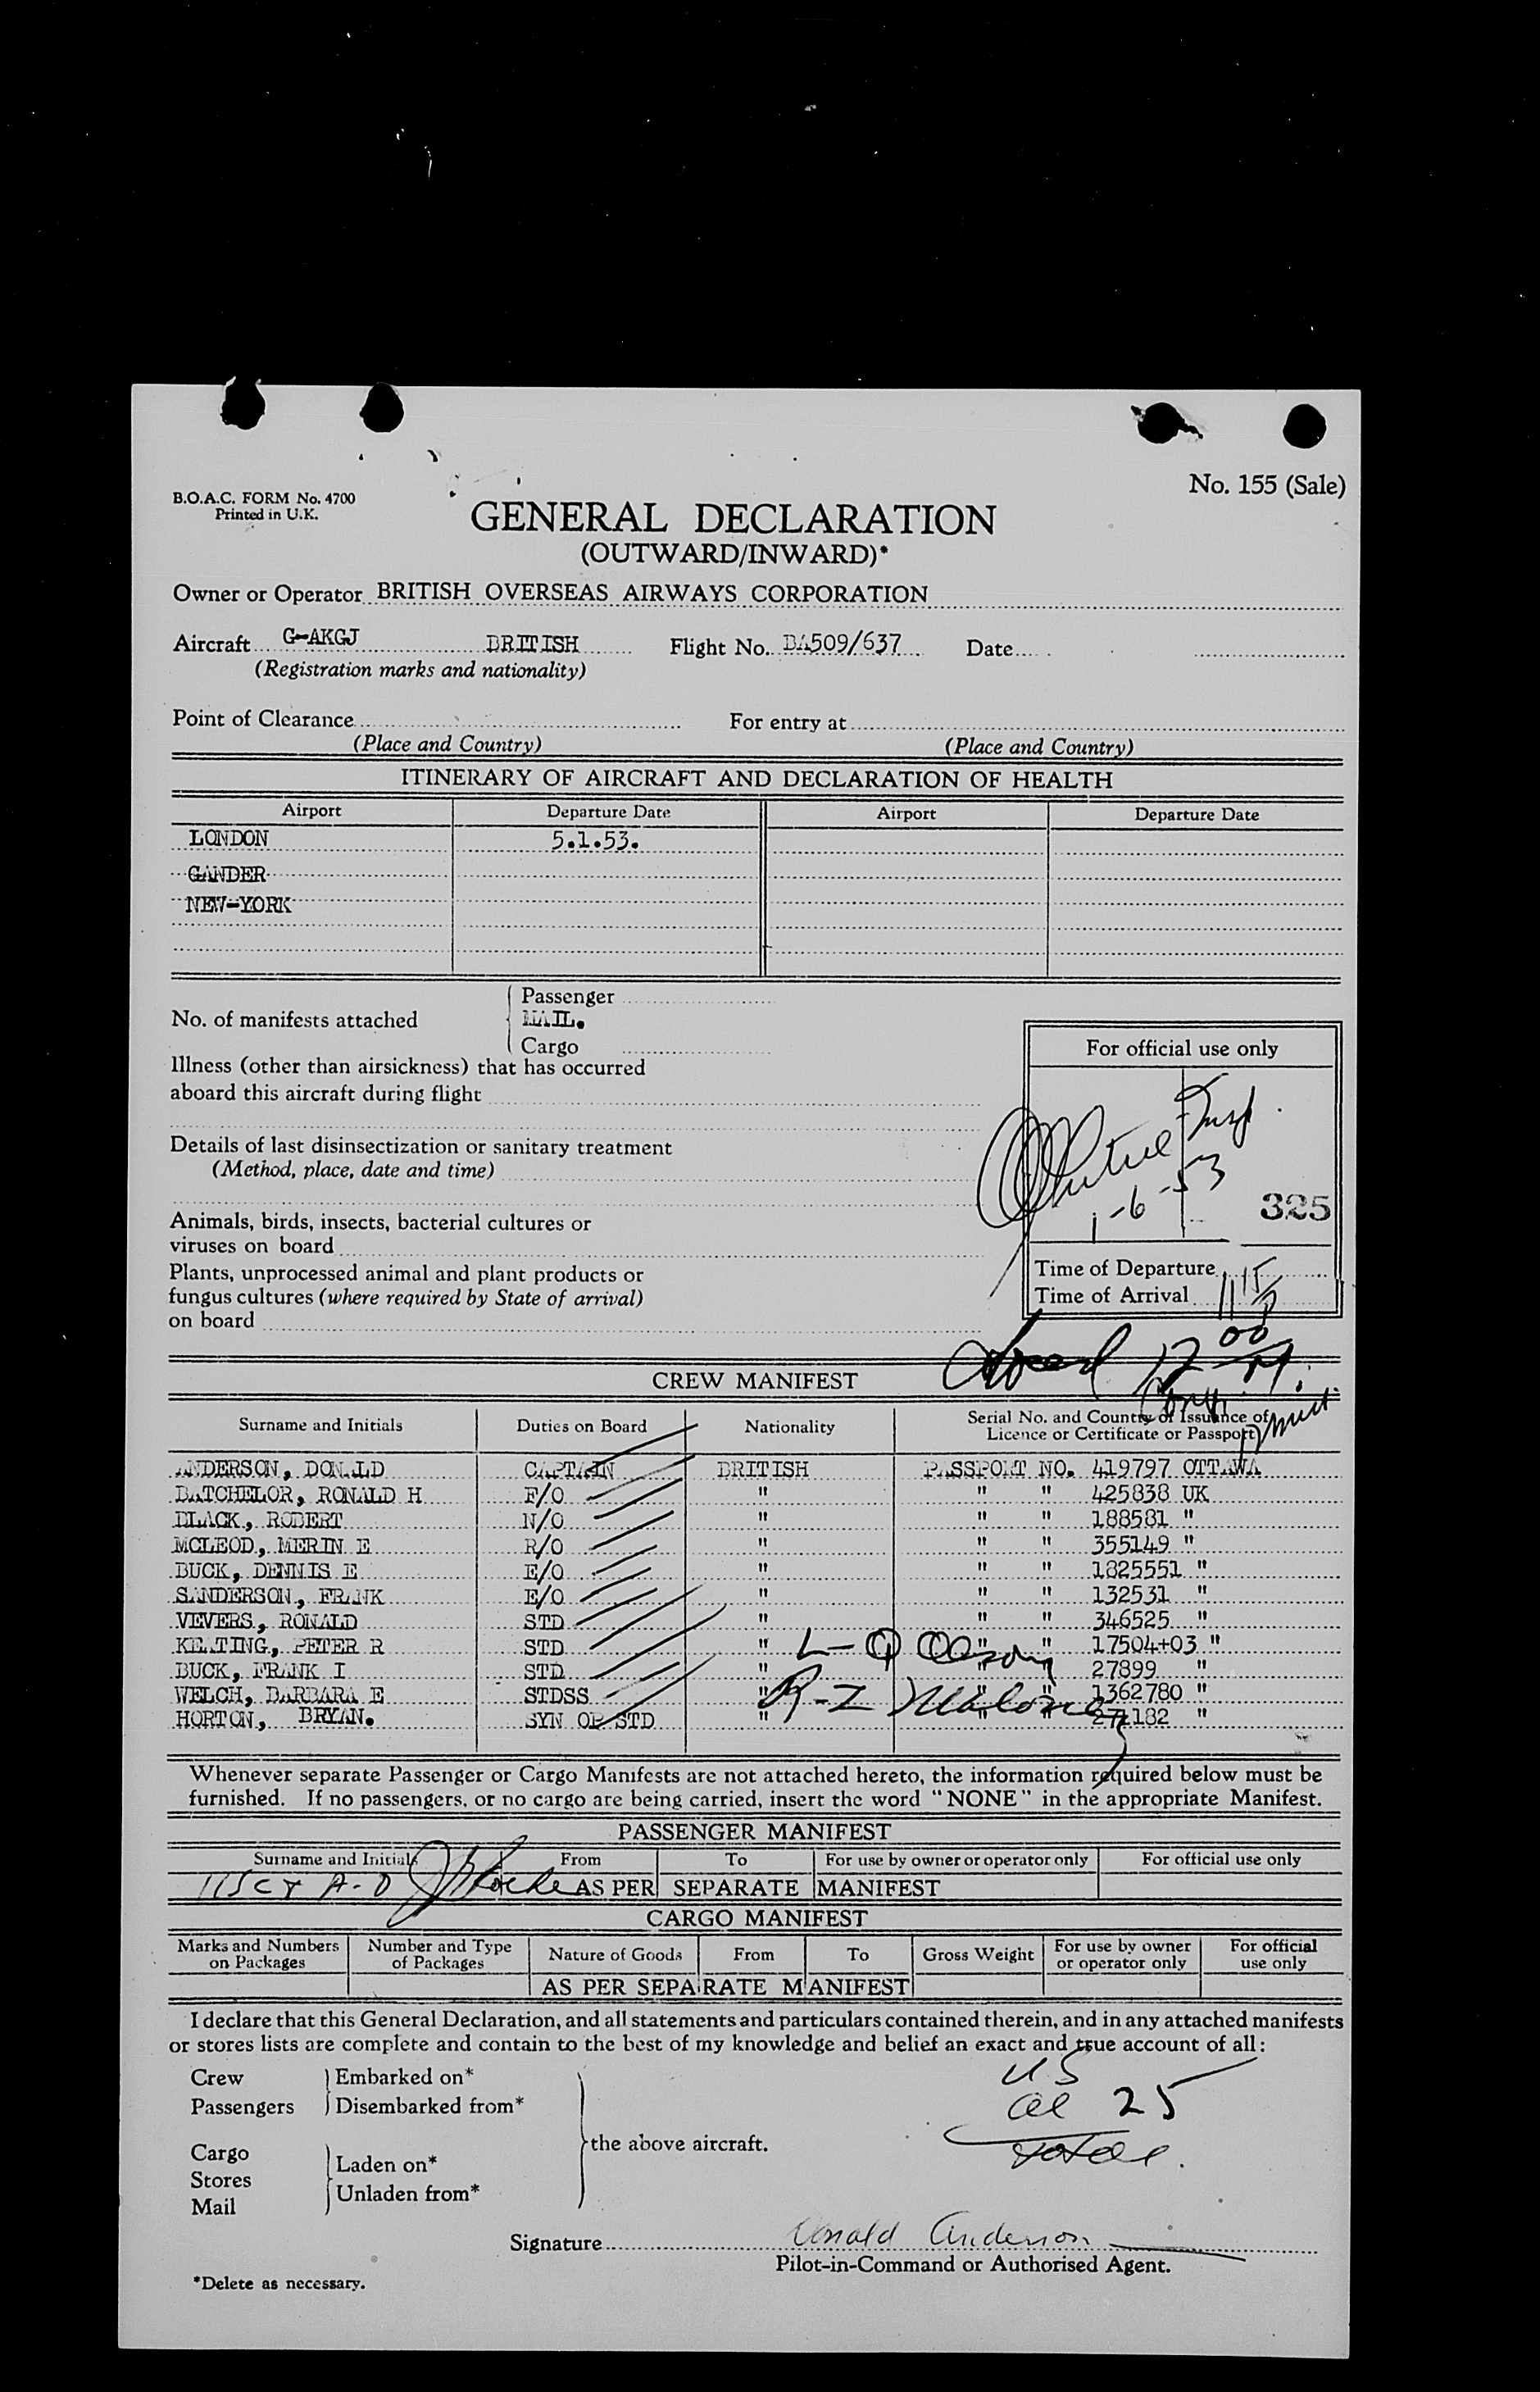 No. 155 (Sale)
B.O.A.C. FORM No. 4700
Printed in U.K.
GENERAL DECLARATION
(OUTWARD/INWARD)*
Owner or Operator BRITISH OVERSEAS AIRWAYS CORPORATION
Aircraft G-AKGJ BRITISH Flight No. BA509/637 Date
(Registration marks and nationality)
Point of Clearance For entry at
(Place and Country) (Place and Country)
ITINERARY OF AIRCRAFT AND DECLARATION OF HEALTH
Airport Departure Date Airport Departure Date
LONDON 5.1.53.
GANDER
NEW-YORK
No. of manifests attached
Passenger
MAIL.
Cargo
Illness (other than airsickness) that has occurred
aboard this aircraft during flight
Details of last disinsectization or sanitary treatment
(Method, place, date and time)
Animals, birds, insects, bacterial cultures or
viruses on board
Plants, unprocessed animal and plant products or
fungus cultures (where required by State of arrival)
on board
For official use only
Insp.
1-6-53
325
Time of Departure
Time of Arrival 1115
12 00
CREW MANIFEST
Surname and Initials Duties on Board Nationality Serial No. and Country of Issuance of
Licence or Certificate or Passport
ANDERSON, DONALD CAPTAIN BRITISH PASSPORT NO. 419797 OTTAWA
BATCHELOR, RONALD H F/O " " " 425838 UK
BLACK, ROBERT N/O " " " 188581 "
MCLEOD, MERIN E R/O " " " 355149 "
BUCK, DENNIS E E/O " " " 1825551 "
SANDERSON, FRANK E/O " " " 132531 "
VEVERS, RONALD STD " " " 346525 "
KEATING, PETER R STD " " " 17504+03 "
BUCK, FRANK I STD " " " 27899 "
WELCH, BARBARA E STDSS " " " 1362780 "
HORTON, BRYAN. SYN OR STD " " " 271182 "
R-Z Maloney
Whenever separate Passenger or Cargo Manifests are not attached hereto, the information required below must be
furnished. If no passengers, or no cargo are being carried, insert the word "NONE" in the appropriate Manifest.
PASSENGER MANIFEST
Surname and Initials From To For use by owner or operator only For official use only
A-D AS PER SEPARATE MANIFEST
CARGO MANIFEST
Marks and Numbers on Packages Number and Type of Packages Nature of Goods From To Gross Weight For use by owner or operator only For official use only
AS PER SEPARATE MANIFEST
I declare that this General Declaration, and all statements and particulars contained therein, and in any attached manifests
or stores lists are complete and contain to the best of my knowledge and belief an exact and true account of all:
Crew Embarked on*
Passengers Disembarked from*
the above aircraft.
Cargo
Stores
Mail
Laden on*
Unladen from*
US
al 25
total.
Signature Donald Anderson
Pilot-in-Command or Authorised Agent.
*Delete as necessary.